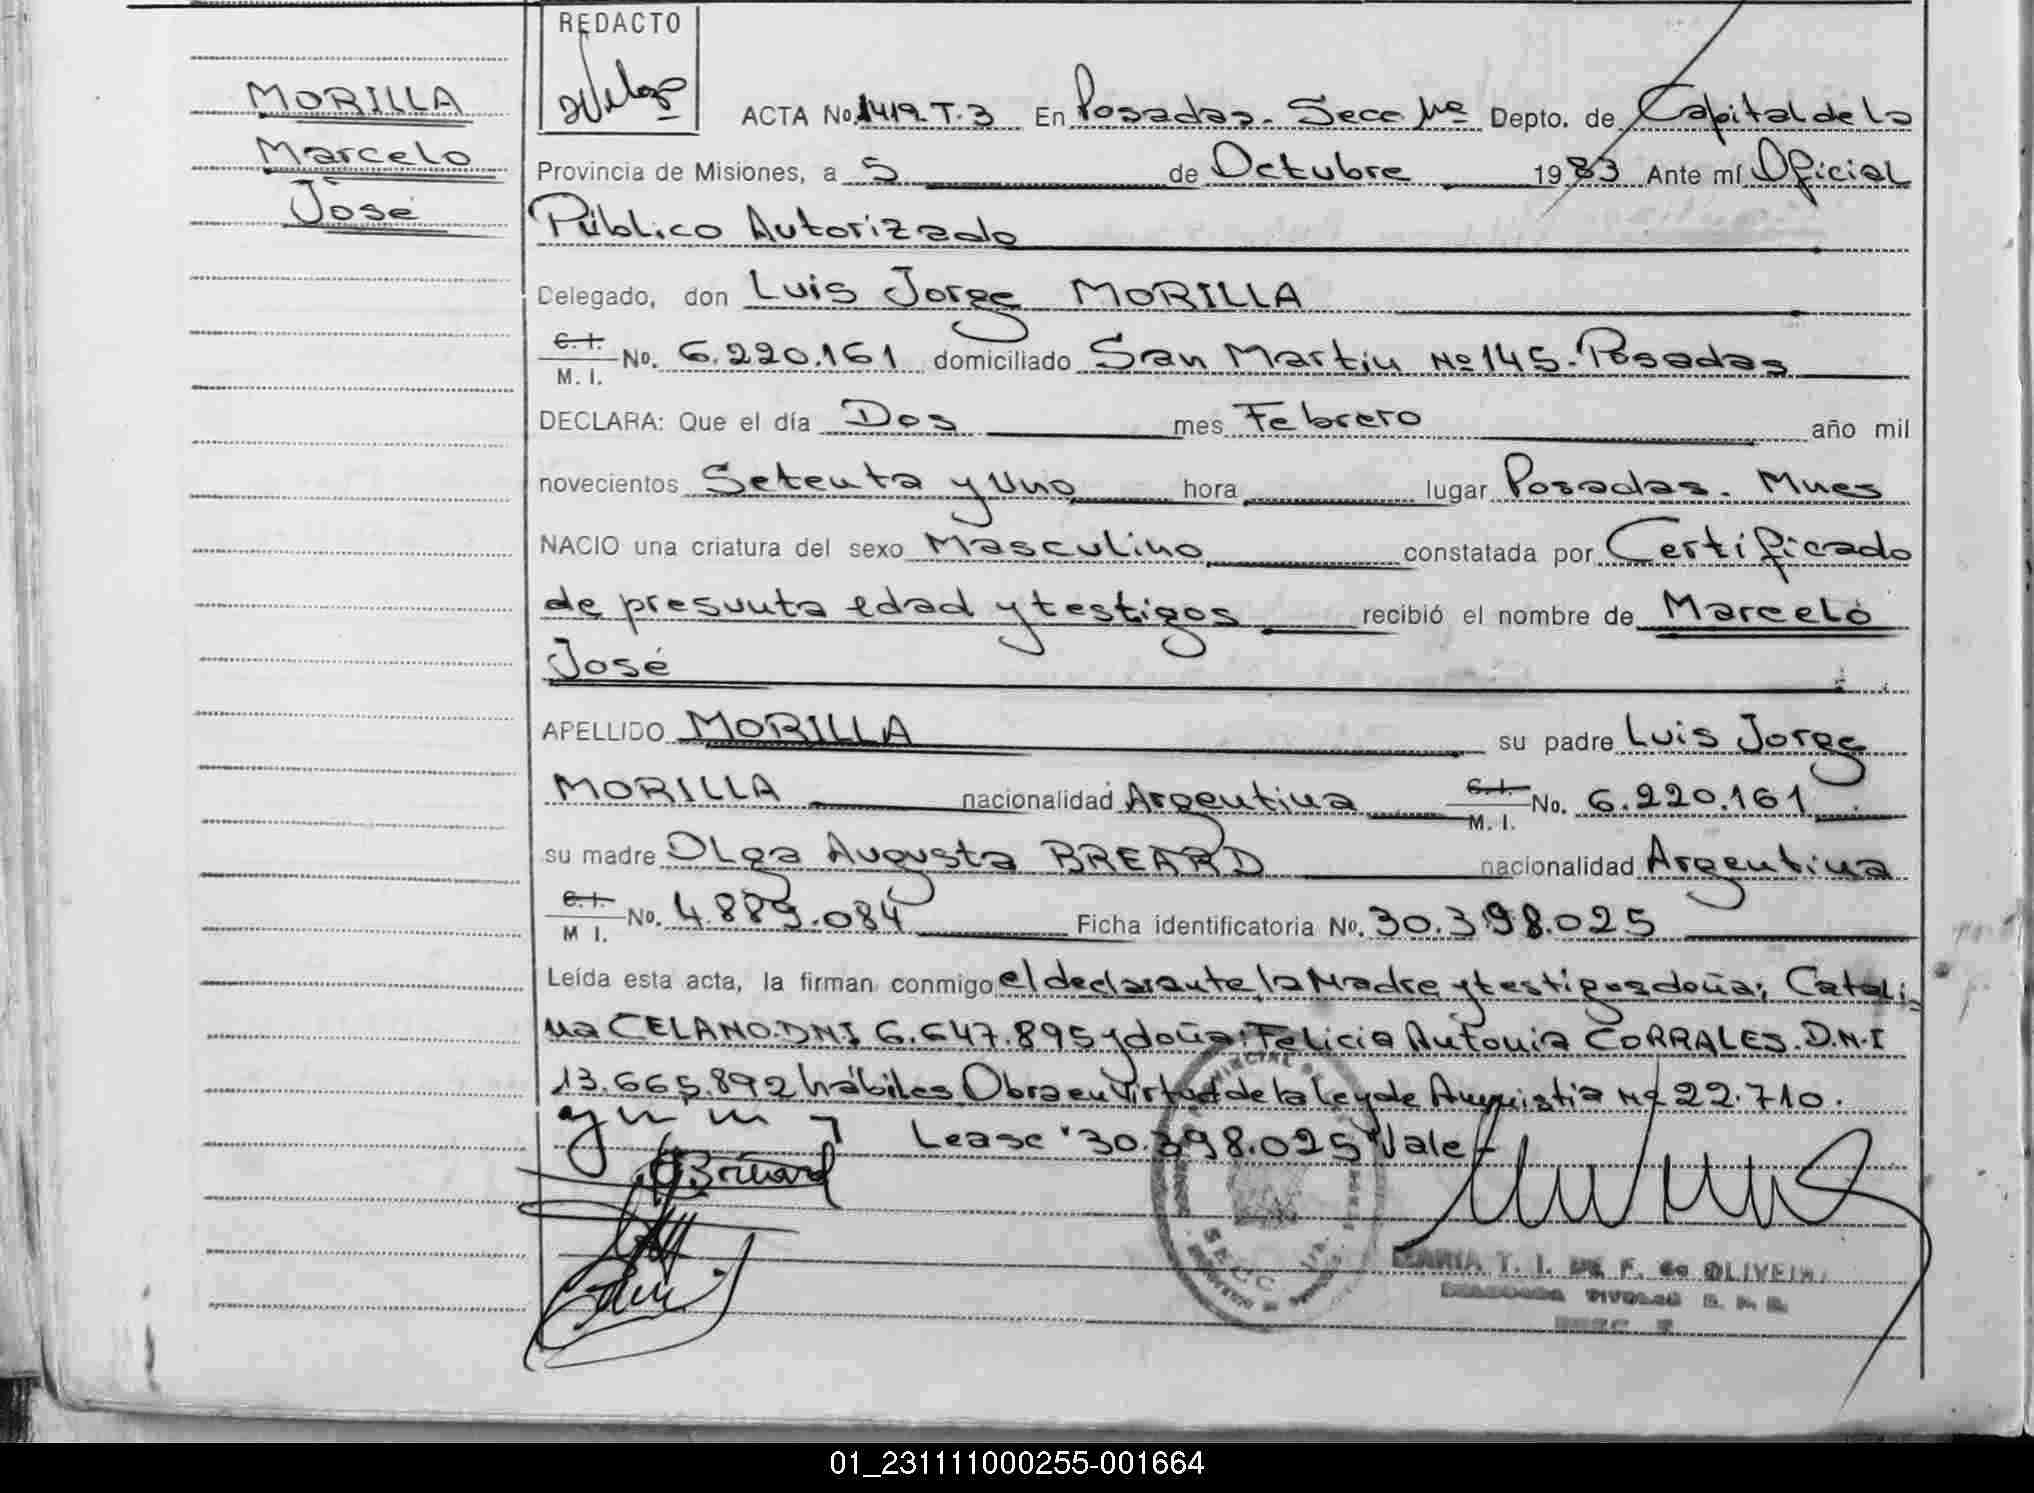 REDACTO
MORILLA
Marcelo
José
ACTA No. 1419. T. 3 En Posadas. Secc 1ª Depto. de Capital de la
Provincia de Misiones, a 5 de Octubre 1983 Ante mí Oficial
Público Autorizado
Delegado, don Luis Jorge MORILLA
C. I.
M. I. No. 6.220.161 domiciliado San Martin Nº 145. Posadas
DECLARA: Que el día Dos mes Febrero año mil
novecientos Setenta y Uno hora lugar Posadas. Mnes
NACIO una criatura del sexo Masculino constatada por Certificado
de presunta edad y testigos recibió el nombre de Marcelo
José
APELLIDO MORILLA su padre Luis Jorge
MORILLA nacionalidad Argentina C. I. M. I. No. 6.220.161
su madre Olga Augusta BREARD nacionalidad Argentina
C. I.
M I. No. 4.889.084 Ficha identificatoria No. 30.398.025
Leída esta acta, la firman conmigo el declarante, la Madre y testigos doña; Catali-
na CELANO. DNI 6.647.895 y doña: Felicia Antonia CORRALES. D.N.I
13.665.892 hábiles Obra en Virtud de la Ley de Amnistia Nº 22.710.
Lease "30.398.025" Vale-
MARIA T. I. DE F. de OLIVEIRA
SECC
01_231111000255-001664